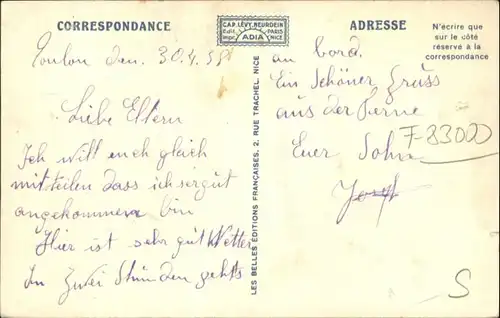 CORRESPONDANCE
C.A.P. LÉVY, NEURDEIN
Edit. Impr. ADIA PARIS NICE
ADRESSE
N'écrire que
sur le côté
réservé à la
correspondance
Toulon den. 30.4.38
Liebe Eltern
Ich will euch gleich
mitteilen dass ich sergut
angekommen bin
Hier ist sehr gut Wetter
In zwei Stunden gehts
LES BELLES ÉDITIONS FRANÇAISES, 2, RUE TRACHEL, NICE
an bord.
Ein Schöner Gruss
aus der Ferne
Euer Sohn
F-83000
Josef
S